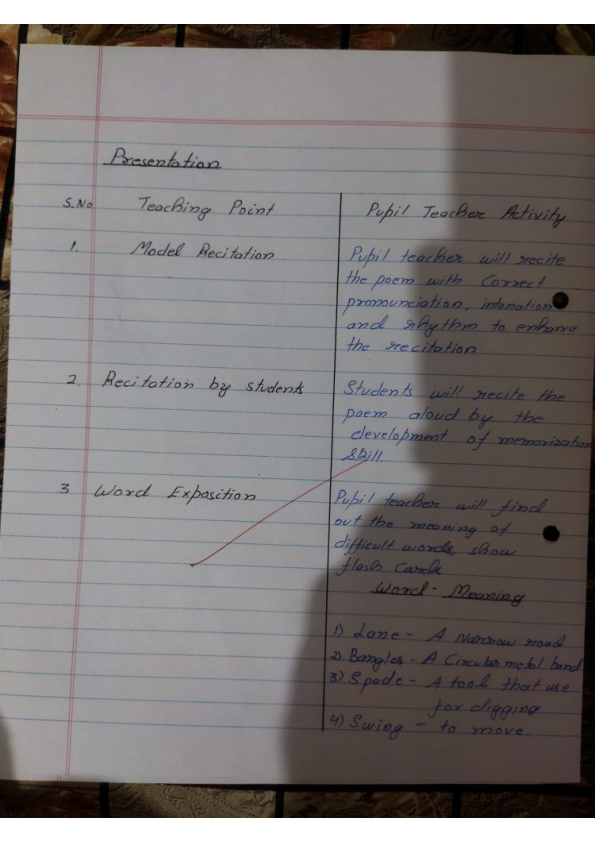 Presentation
S.No Teaching Point Pupil Teacher Activity
1. Model Recitation Pupil teacher will recite
the poem with correct
pronounciation, intonation
and rhythm to enhance
the recitation
2. Recitation by students Students will recite the
poem aloud by the
development of memorization
skill.
3 Word Exposition Pupil teacher will find
out the meaning of
difficult words show
flash cards
Word - Meaning
1) Lane - A Narrow road
2) Bangles - A Circular metal band
3) Spade - A tool that use
for digging
4) Swing - to move.